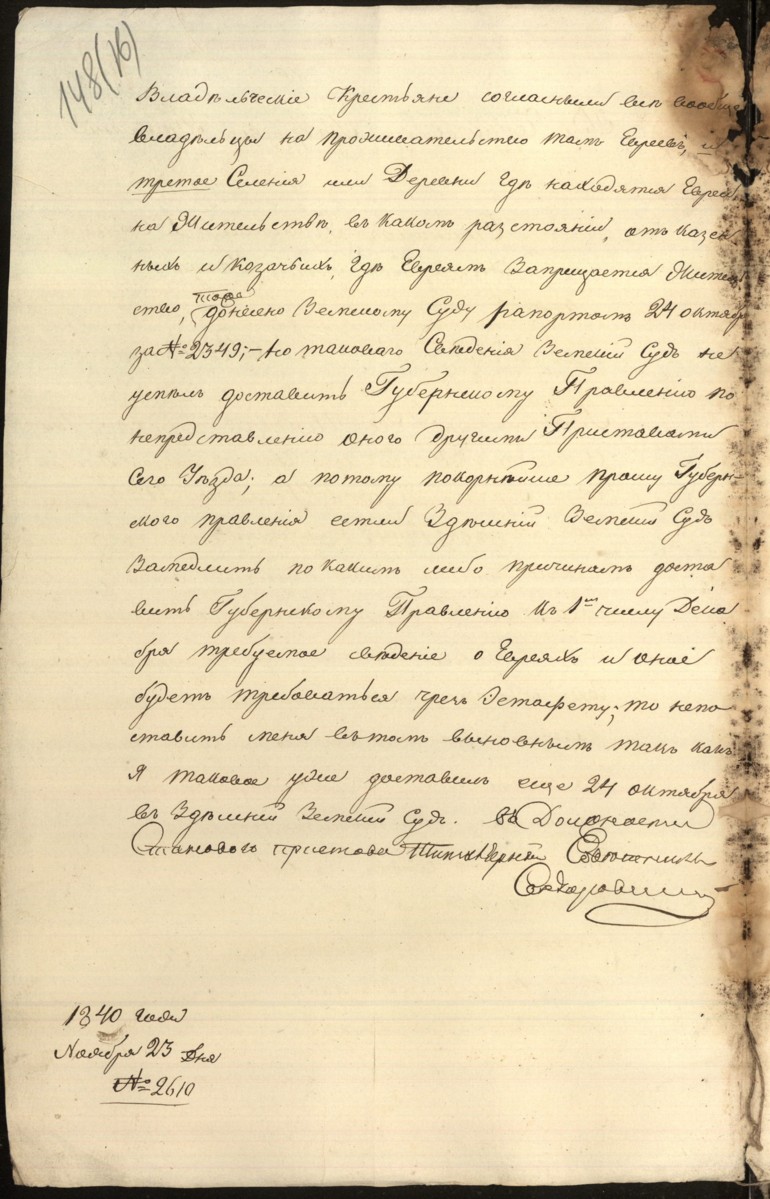 148(16)
Владѣльческіе Крестьяне согласныли всѣ вообще
владѣльцы на прожительство тамъ Евреевъ, и
третое Селенія или Деревни гдѣ находятся Евреи
на Жительствѣ, въ какомъ разстояніи, отъ казен
ныхъ и козачьихъ, гдѣ Евреямъ Запрещается Житель
ство, тоже донесено Земскому Суду рапортомъ 24 октября
за №2349;- но таковаго Свѣденія Земскій Судъ не
успѣлъ доставить Губернскому Правленію по
непредставленію оного другими Приставами
Сего Уѣзда; а потому покорнѣйше прошу Губерн-
ского правленія естли Здѣшній Земскій Судъ
Замедлитъ по какимъ либо причинамъ доста
вить Губернскому Правленію къ 1му числу Дека
бря требуемое свѣденіе о Евреяхъ и оное
будетъ требоваться чрезъ Эстафету; то непо
ставить меня въ томъ выновнымъ такъ какъ
Я таковое уже доставилъ еще 24 октября
въ Здѣшній Земскій Судъ. въ Должности
Становаго пристава
1840 года
Ноября 23 дня
№ 2610